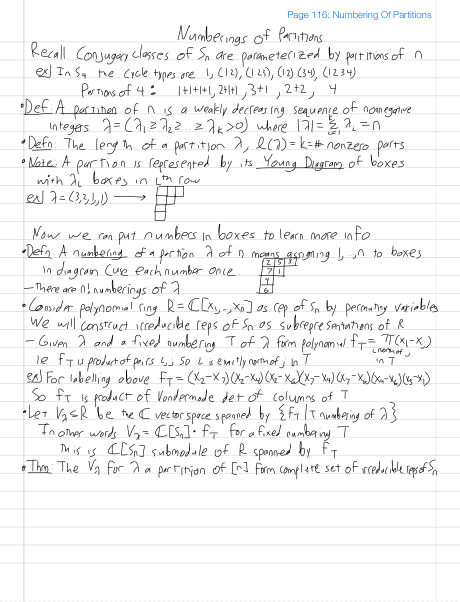 Page 116: Numbering Of Partitions
Numberings of Partitions
Recall Conjugacy classes of Sn are parameterized by partitions of n
ex) In S4 the cycle types are 1, (12), (123), (12)(34), (1234)
Partitions of 4: 1+1+1+1, 2+1+1, 3+1, 2+2, 4
• Def: A partition of n is a weakly decreasing sequence of nonnegative
integers λ = (λ1 ≥ λ2 ≥ ... ≥ λk > 0) where |λ| = Σ λi = n
• Defn The length of a partition λ, ℓ(λ) = k = # nonzero parts
• Note: A partition is represented by its Young Diagram of boxes
with λi boxes in ith row
ex) λ = (3,2,1,1) →
Now we can put numbers in boxes to learn more info
• Defn: A numbering of a partition λ of n means assigning 1,...,n to boxes
in diagram (use each number once.
2 5 3
7 1
4
6
– There are n! numberings of λ
• Consider polynomial ring R = C[x1,...,xn] as rep of Sn by permuting variables
We will construct irreducible reps of Sn as subrepresentations of R
– Given λ and a fixed numbering T of λ form polynomial fT = Π(xi - xj)
i north of j
in T
ie fT is product of pairs i,j so i is exactly north of j in T
ex) For labelling above fT = (x2-x7)(x2-x4)(x2-x6)(x7-x4)(x7-x6)(x4-x6)(x5-x1)
So fT is product of Vandermonde det of columns of T
• Let Vλ ⊆ R be the C vector space spanned by {fT | T numbering of λ}
In other words Vλ = C[Sn] · fT for a fixed numbering T
This is C[Sn] submodule of R spanned by fT
• Thm: The Vλ for λ a partition of [n] form complete set of irreducible reps of Sn